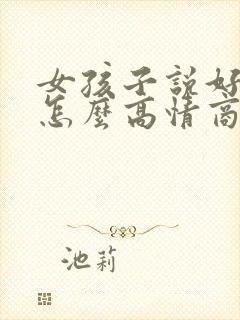 女孩子説好
怎麼高情商
池莉